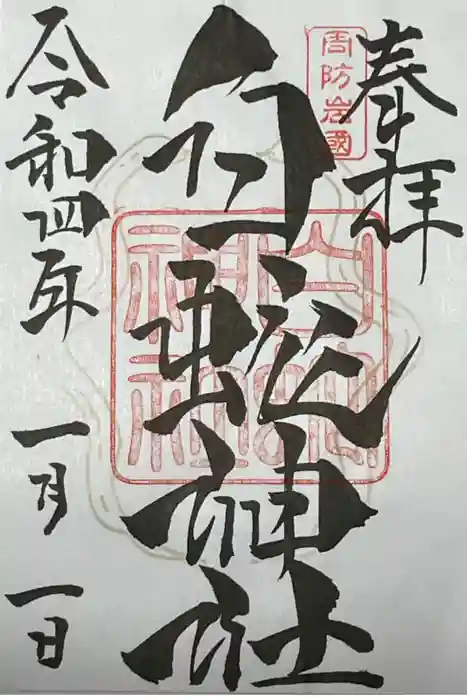 奉拝
周防岩國
白蛇神社
白蛇神社
令和四年
一月
一日